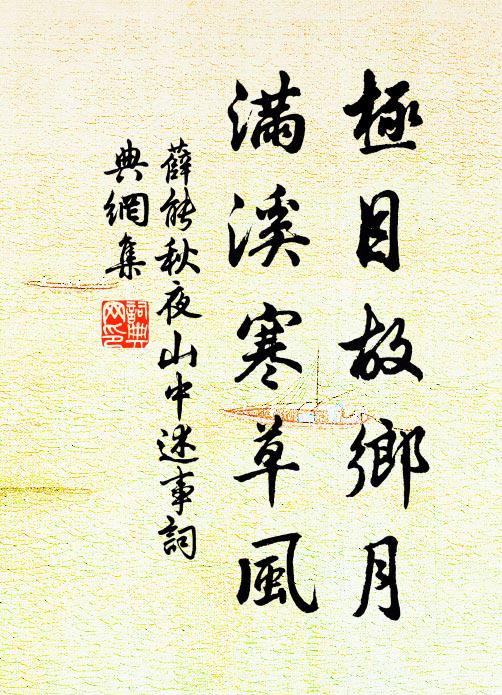 極目故鄉月
滿溪寒草風
薛能秋夜山中述事詞
典網集
詞典
网印